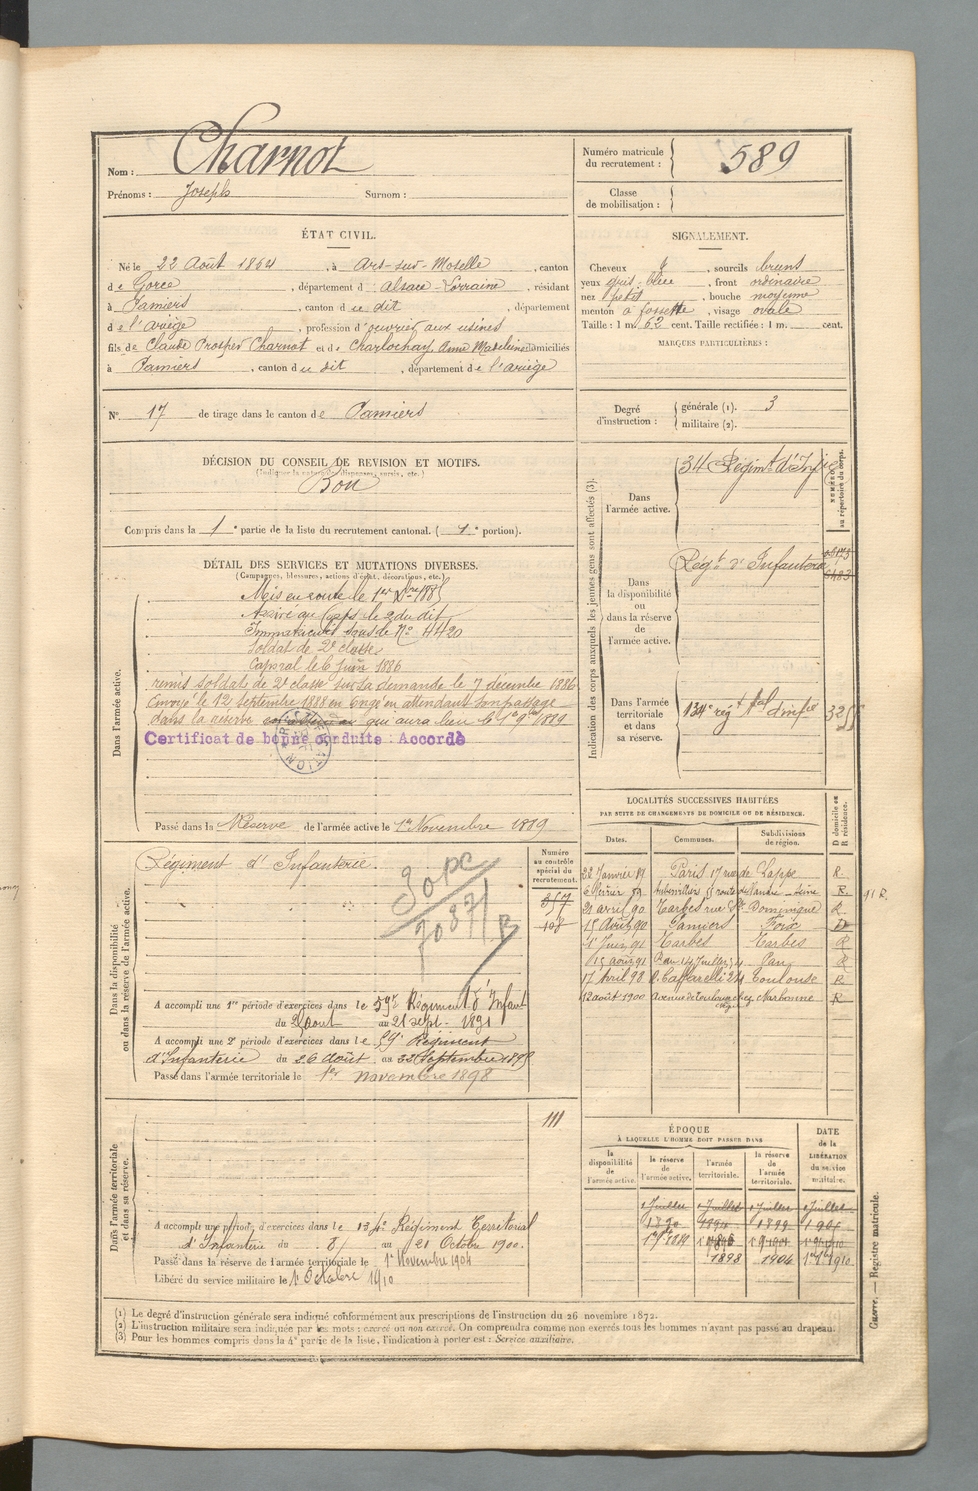 Nom : Charnot
Prénoms : Joseph Surnom :
Numéro matricule du recrutement : 589
Classe de mobilisation :
ÉTAT CIVIL.
Né le 22 Août 1864, à Ars-sur-Moselle, canton
de Gorze, département d Alsace-Lorraine, résidant
à Pamiers, canton du dit, département
de l'Ariège, profession d'ouvrier aux usines
fils de Claude Prosper Charnot et de Charlochay, Anne Madeleine domiciliés
à Pamiers, canton du dit, département de l'ariège
N° 17 de tirage dans le canton de Pamiers
SIGNALEMENT.
Cheveux , sourcils bruns
yeux gris bleu, front ordinaire
nez petit, bouche moyenne
menton à fossette, visage ovale
Taille : 1 m. 62 cent. Taille rectifiée : 1 m. cent.
MARQUES PARTICULIÈRES :
Degré d'instruction : générale (1). 3
militaire (2).
DÉCISION DU CONSEIL DE REVISION ET MOTIFS.
(Indiquer la nature des dispenses, sursis, etc.)
Bon
Compris dans la 1e partie de la liste du recrutement cantonal. ( 1e portion).
DÉTAIL DES SERVICES ET MUTATIONS DIVERSES.
(Campagnes, blessures, actions d'éclat, décorations, etc.)
Dans l'armée active.
Mis en route le 1er Xbre 1885
Arrivé au Corps le 2 du dit
Immatriculé sous le N° 4420
Soldat de 2e classe
Caporal le 6 Juin 1886
remis soldat de 2e classe sur sa demande le 7 décembre 1886
Envoyé le 12 septembre 1888 en congé en attendant son passage
dans la réserve qui aura lieu le 1er 9bre 1889
Certificat de bonne conduite : Accordé
Passé dans la Réserve de l'armée active le 1er Novembre 1889
Indication des corps auxquels les jeunes gens sont affectés (3).
NUMÉRO au répertoire du corps.
Dans l'armée active. 34 Régimt d'Infie
Dans la disponibilité ou dans la réserve de l'armée active. Régt d'Infanterie
Dans l'armée territoriale et dans sa réserve. 134e régt tal d'infie
LOCALITÉS SUCCESSIVES HABITÉES
PAR SUITE DE CHANGEMENTS DE DOMICILE OU DE RÉSIDENCE.
D domicile ou R résidence.
Dates. Communes. Subdivisions de région.
22 Janvier 89 Paris 17 rue de Lappe R.
6 février 89 Aubervilliers 55 route de Flandre Seine R.
21 avril 90 Tarbes rue St Dominique R.
15 Août 90 Pamiers Foix D
1er Juin 91 Tarbes Tarbes R
15 août 91 R. du 14 Juillet Pau R
17 Avril 98 R. Caffarelli 24 Toulouse R
12 août 1900 Avenue de Toulouse Narbonne R
11 R.
Dans la disponibilité ou dans la réserve de l'armée active.
Numéro au contrôle spécial du recrutement.
Régiment d'Infanterie
257
108
A accompli une 1re période d'exercices dans le 59e Régiment d'Infant
du Août au 21 sept. 1891
A accompli une 2e période d'exercices dans le 59e Régiment
d'Infanterie du 26 août au 22 Septembre 1895
Passé dans l'armée territoriale le 1er Novembre 1898
Dans l'armée territoriale et dans sa réserve.
111
A accompli une période d'exercices dans le 134e Régiment Territorial
d'Infanterie du 8 au 21 Octobre 1900.
Passé dans la réserve de l'armée territoriale le 1er Novembre 1904
Libéré du service militaire le 1er Octobre 1910
ÉPOQUE
À LAQUELLE L'HOMME DOIT PASSER DANS
DATE de la LIBÉRATION du service militaire.
la disponibilité de l'armée active. la réserve de l'armée active. l'armée territoriale. la réserve de l'armée territoriale.
1 Juillet 1 Juillet 1 Juillet 1 Juillet
1890 1899
1898 1904 1910
(1) Le degré d'instruction générale sera indiqué conformément aux prescriptions de l'instruction du 26 novembre 1872.
(2) L'instruction militaire sera indiquée par les mots : exercé ou non exercé. On comprendra comme non exercés tous les hommes n'ayant pas passé au drapeau.
(3) Pour les hommes compris dans la 4e partie de la liste, l'indication à porter est : Service auxiliaire.
Guerre. — Registre matricule.